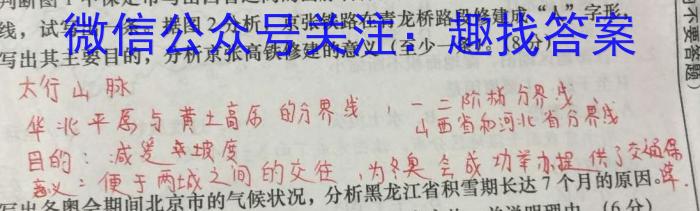 线，试写出一条。据图2分析，京张铁路在青龙桥路段修建成“人”字形，
微信公众号关注：趣找答案
写出其主要目的，分析京张高铁修建的意义（至少一条）。（8分）
太行山脉
华北平原与黄土高原的分界线，一二阶梯分界线
山西省和河北省分界线
目的：减缓坡度
意义：便于两城之间的交往，为冬奥会成功举办提供了交通保障
写出冬奥会期间北京市的气候状况，分析黑龙江省积雪期长达7个月的原因。
（6分）
不要答题）